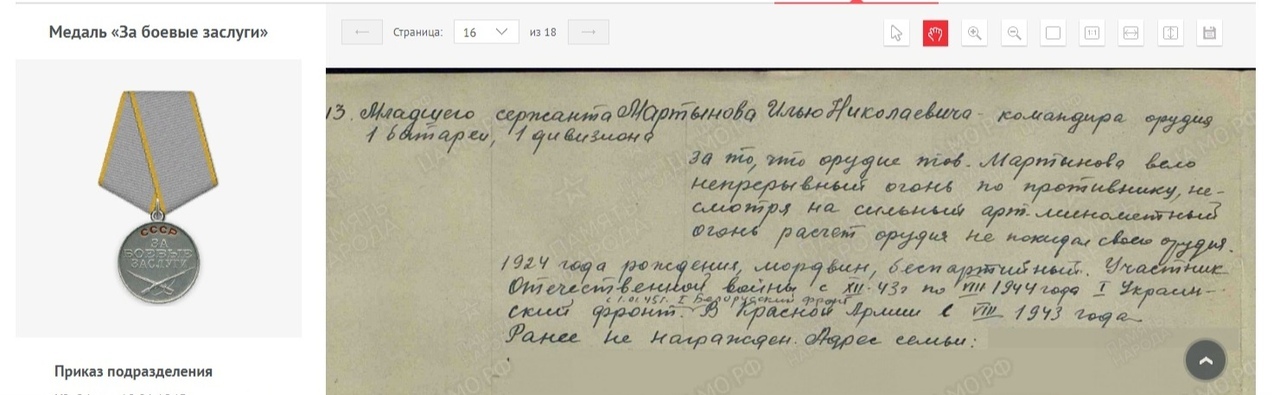 Медаль «За боевые заслуги»
Страница: 16 из 18
1:1
СССР
ЗА
БОЕВЫЕ
ЗАСЛУГИ
13. Младшего сержанта Мартынова Илью Николаевича - командира орудия
1 батареи, 1 дивизиона
За то, что орудие тов. Мартынова вело
непрерывный огонь по противнику, не-
смотря на сильный арт. минометный
огонь расчет орудия не покидал своего орудия.
1924 года рождения, мордвин, беспартийный. Участник
Отечественной войны с XII-43г по VIII 1944 года I Украин-
с 1.01.45г. I Белорусский фронт
ский фронт. В Красной Армии с VIII 1943 года
Ранее не награжден. Адрес семьи:
Приказ подразделения